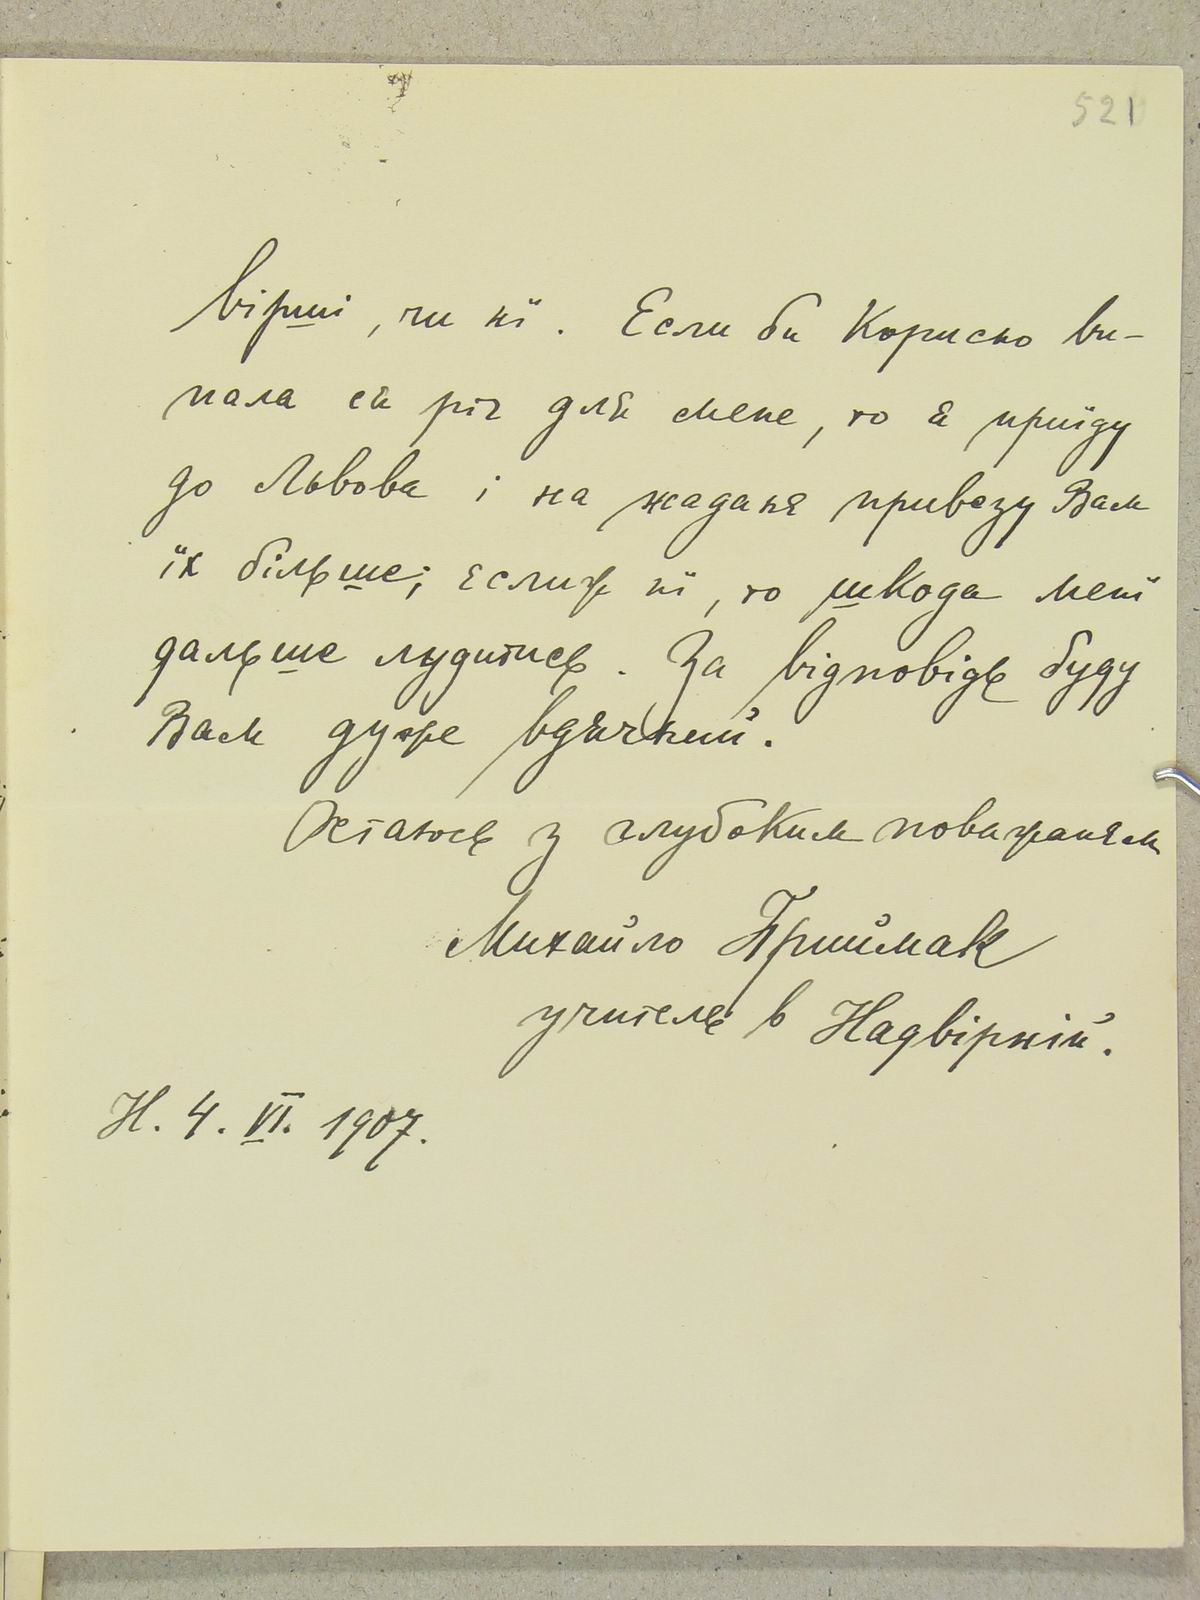 521
вірші, чи нї. Если би Корисно ви-
пала ся річ для мене, то я приїду
до Львова і на жаданє привезу Вам
їх більше; єслиж нї, то шкода менї
дальше лудитись. За відповідь буду
Вам дуже вдячний.
Остаюсь з глубоким поважанєм
Михайло Приймак
учитель в Надвірній.
Н. 4. VI. 1907.